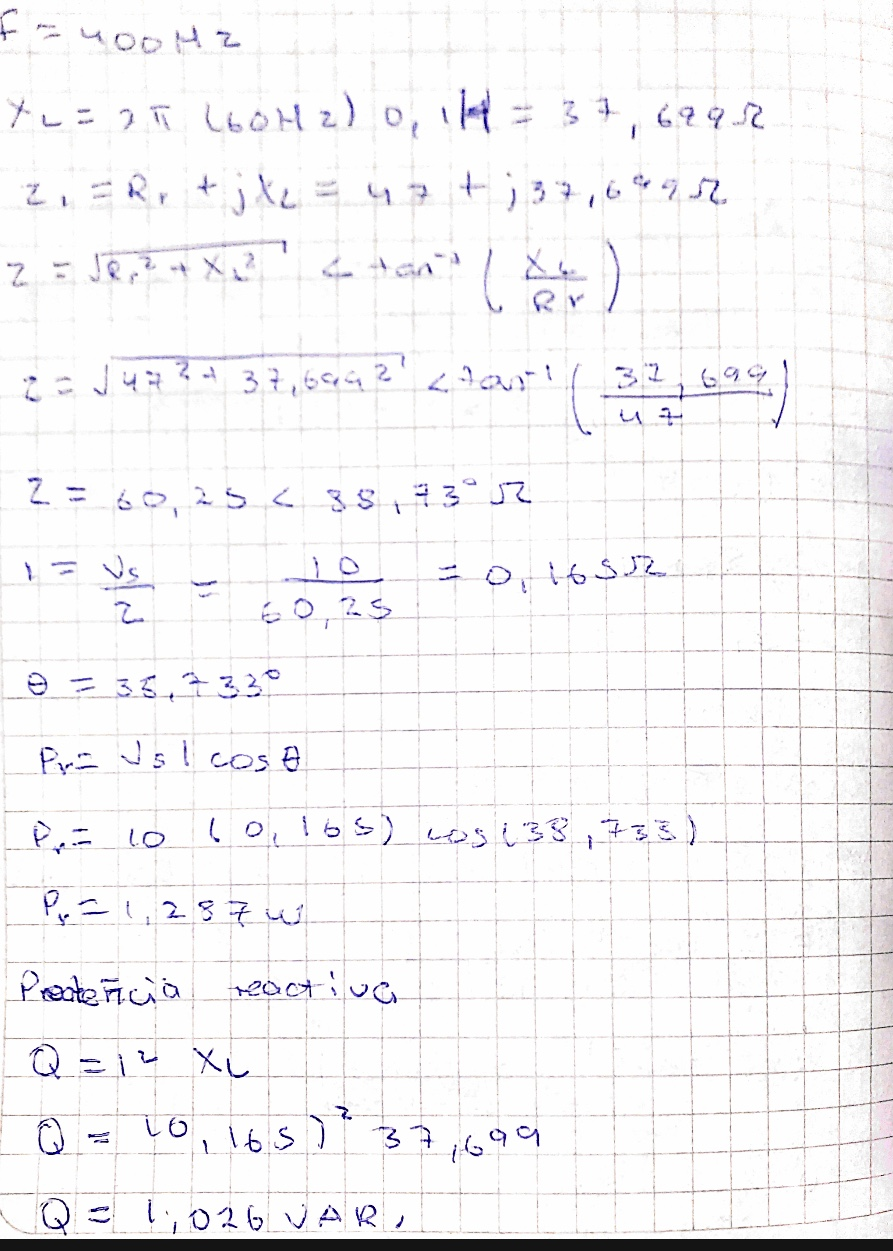 F = 400Hz
XL = 2π (60Hz) 0,1H = 37,699Ω
Z1 = Rr + jXL = 47 + j37,699Ω
Z = √Rr² + XL² < tan⁻¹ (XL/Rr)
Z = √47² + 37,699² < tan⁻¹ (37,699/47)
Z = 60,25 < 38,73° Ω
I = Vs/Z = 10/60,25 = 0,165Ω
θ = 38,733°
Pr = Vs I cos θ
Pr = 10 (0,165) cos(38,733)
Pr = 1,287 w
Potencia reactiva
Q = I² XL
Q = (0,165)² 37,699
Q = 1,026 VAR,